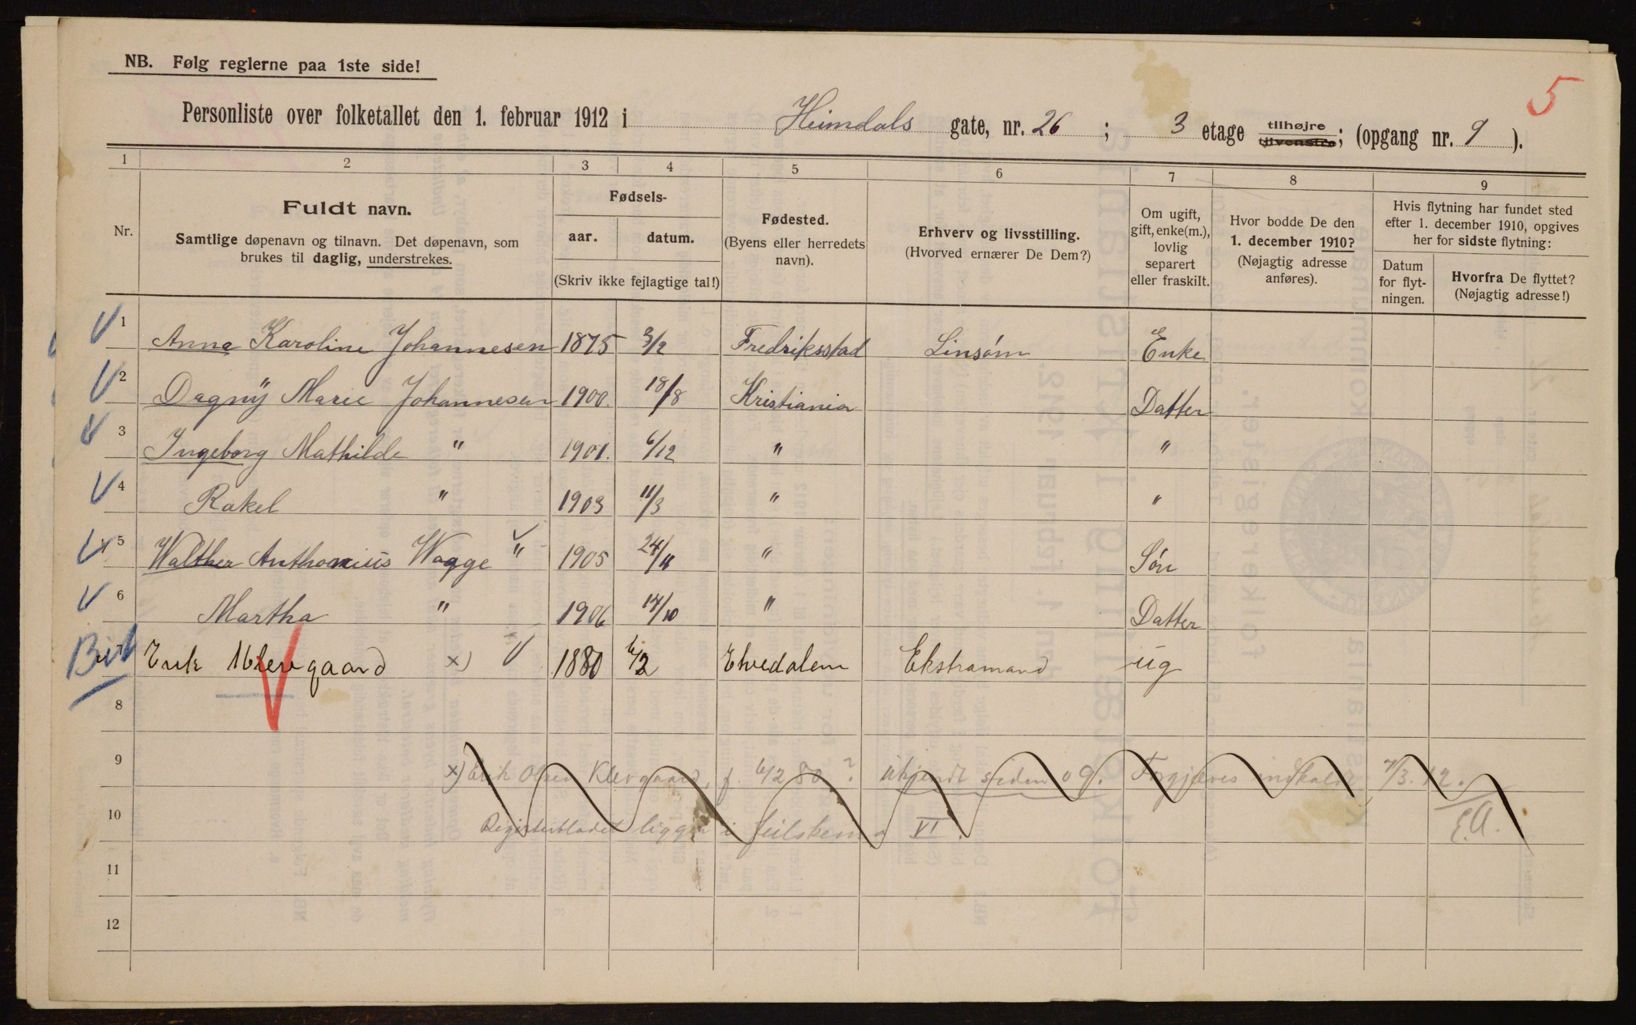 NB. Følg reglerne paa 1ste side!
5
Personliste over folketallet den 1. februar 1912 i Heimdals gate, nr. 26 ; 3 etage tilhøjre tilvenstre; (opgang nr. 9 ).
1 2 3 4 5 6 7 8 9
Nr.
Fuldt navn.
Samtlige døpenavn og tilnavn. Det døpenavn, som
brukes til daglig, understrekes.
Fødsels-
aar. datum.
(Skriv ikke fejlagtige tal!)
Fødested.
(Byens eller herredets
navn).
Erhverv og livsstilling.
(Hvorved ernærer De Dem?)
Om ugift,
gift, enke(m.),
lovlig
separert
eller fraskilt.
Hvor bodde De den
1. december 1910?
(Nøjagtig adresse
anføres).
Hvis flytning har fundet sted
efter 1. december 1910, opgives
her for sidste flytning:
Datum
for flyt-
ningen.
Hvorfra De flyttet?
(Nøjagtig adresse!)
1 Anna Karoline Johannesen 1875 3/2 Fredriksstad Linsøm Enke
2 Dagny Marie Johannesen 1900. 18/8 Kristiania Datter
3 Ingeborg Mathilde " 1901. 6/12 " "
4 Rakel " 1903 11/3 " "
5 Walther Anthonius Wagge " 1905 24/11 " Søn
6 Martha " 1906 14/10 " Datter
Erik Klevgaard x) 1880 6/2 Elvedalem Ekstramand ug
8
9 x) Erik Olsen Klevgaard f. 6/2 80 ? ukjendt siden 09. Forgjæves indkaldt /3.12.
10 Registerbladet ligger i VI. E.A.
11
12